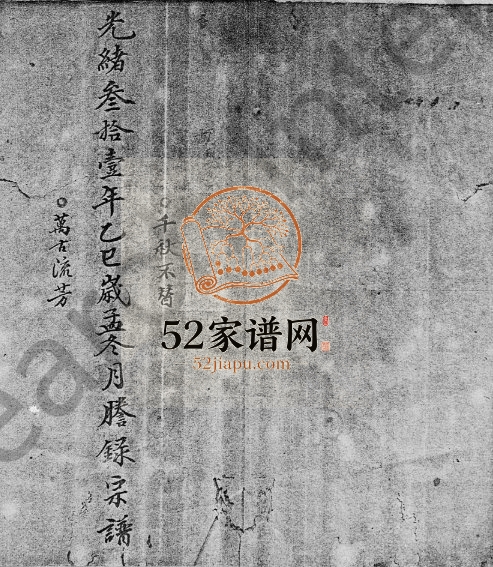 千秋不替
光緒叁拾壹年乙巳歲孟冬月謄錄宗譜
萬古流芳
52家谱网
52jiapu.com